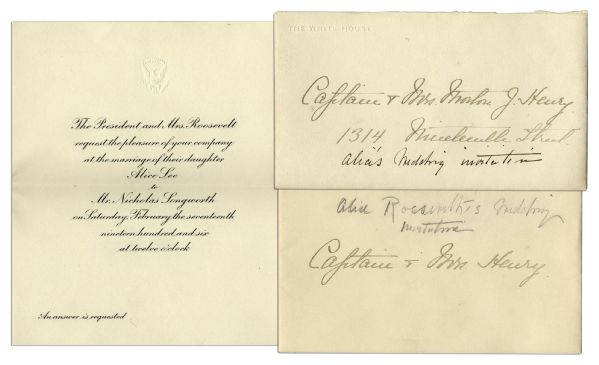 The President and Mrs. Roosevelt
request the pleasure of your company
at the marriage of their daughter
Alice Lee
to
Mr. Nicholas Longworth
on Saturday, February the seventeenth
nineteen hundred and six
at twelve o'clock
An answer is requested
THE WHITE HOUSE
Captain & Mrs. Morton J. Henry
1314 Nineteenth Street
Alice's Wedding invitation
Alice Roosevelt's Wedding
invitation
Captain & Mrs. Henry.